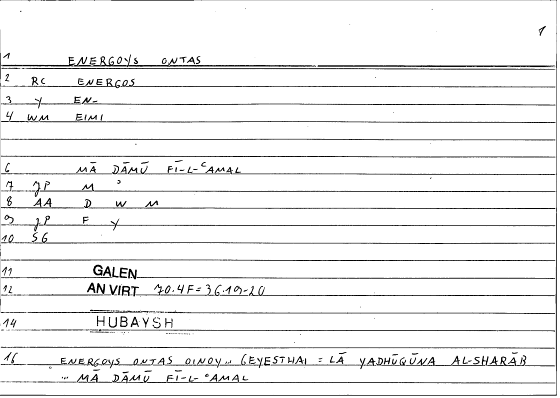 1
1 ENERGOYS ONTAS
2 RC ENERGOS
3 Y EN-
4 WM EIMI
6 MĀ DĀMŪ FĪ-L-ʿAMAL
7 JP M ʾ
8 AA D W M
9 JP F Y
10 SG
11 GALEN
12 AN VIRT 70.4F=36.19-20
14 HUBAYSH
16 ENERGOYS ONTAS OINOY.. GEYESTHAI = LĀ YADHŪQŪNA AL-SHARĀB
.. MĀ DĀMŪ FĪ-L-ʿAMAL